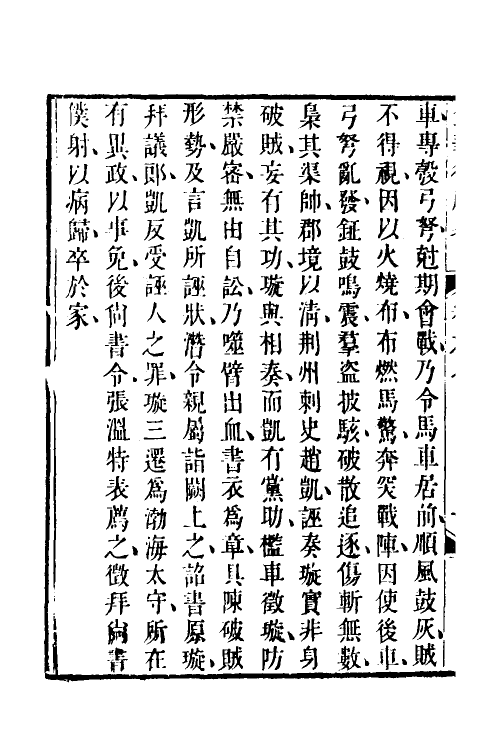 車專彀弓弩尅期會戰乃令馬車居前順風鼓灰賊
不得視因以火燒布布燃馬驚奔突賊陣因使後車
弓弩亂發鉦鼓鳴震羣盜披駭破散追逐傷斬無數
梟其渠帥郡境以清荆州刺史趙凱誣奏璇實非身
破賊妄有其功璇與相奏而凱有黨助檻車徵璇防
禁嚴密無由自訟乃噬臂出血書衣爲章具陳破賊
形勢及言凱所誣狀潛令親屬詣闕上之詔書原璇
拜議郎凱反受誣人之罪璇三遷爲渤海太守所在
有異政以事免後尙書令張溫特表薦之徵拜尙書
僕射以病歸卒於家